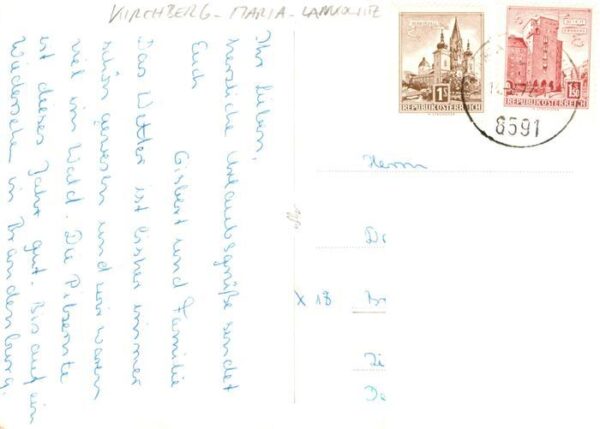 KIRCHBERG - MARIA - LANKOWITZ
Ihr Lieben,
herzliche Urlaubsgrüße sendet
Euch
Gisbert und Familie
Das Wetter ist bisher immer
schön gewesen und wir waren
viel im Wald. Die Pilzernte
ist dieses Jahr gut. Bis auf ein
Wiedersehen in Brandenburg.
1S
REPUBLIK ÖSTERREICH
1.50
REPUBLIK ÖSTERREICH
8591
Herrn
X 18